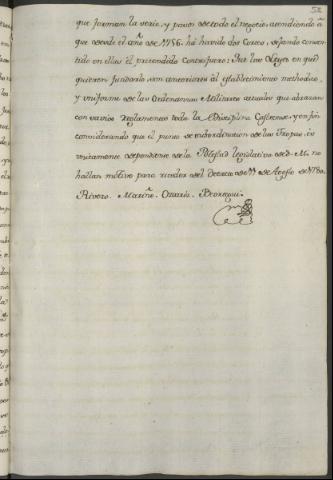 52
que forman la serie, y pauso de todo el negocio, atendiendo à
que desde el año de 1756. ha havido dos Casos, dejando conver-
tido en ellas el pretendido Contrafuero: Que las Leyes en que
quieren fundarlo son anteriores al establecimiento methodico,
y uniforme de las Ordenanzas Militares actuales que abrazan
con varios Reglamentos toda la Disciplina Castrense; y en fin
considerando que el punto de subordinacion de las Tropas es
privativamente dependiente de la Potestad legislativa de S. M. no
hallan motivo para exceder del Decreto de 11 de Agosto de 1780.
Rivero. Mariño. Ozaris. Beortegui.